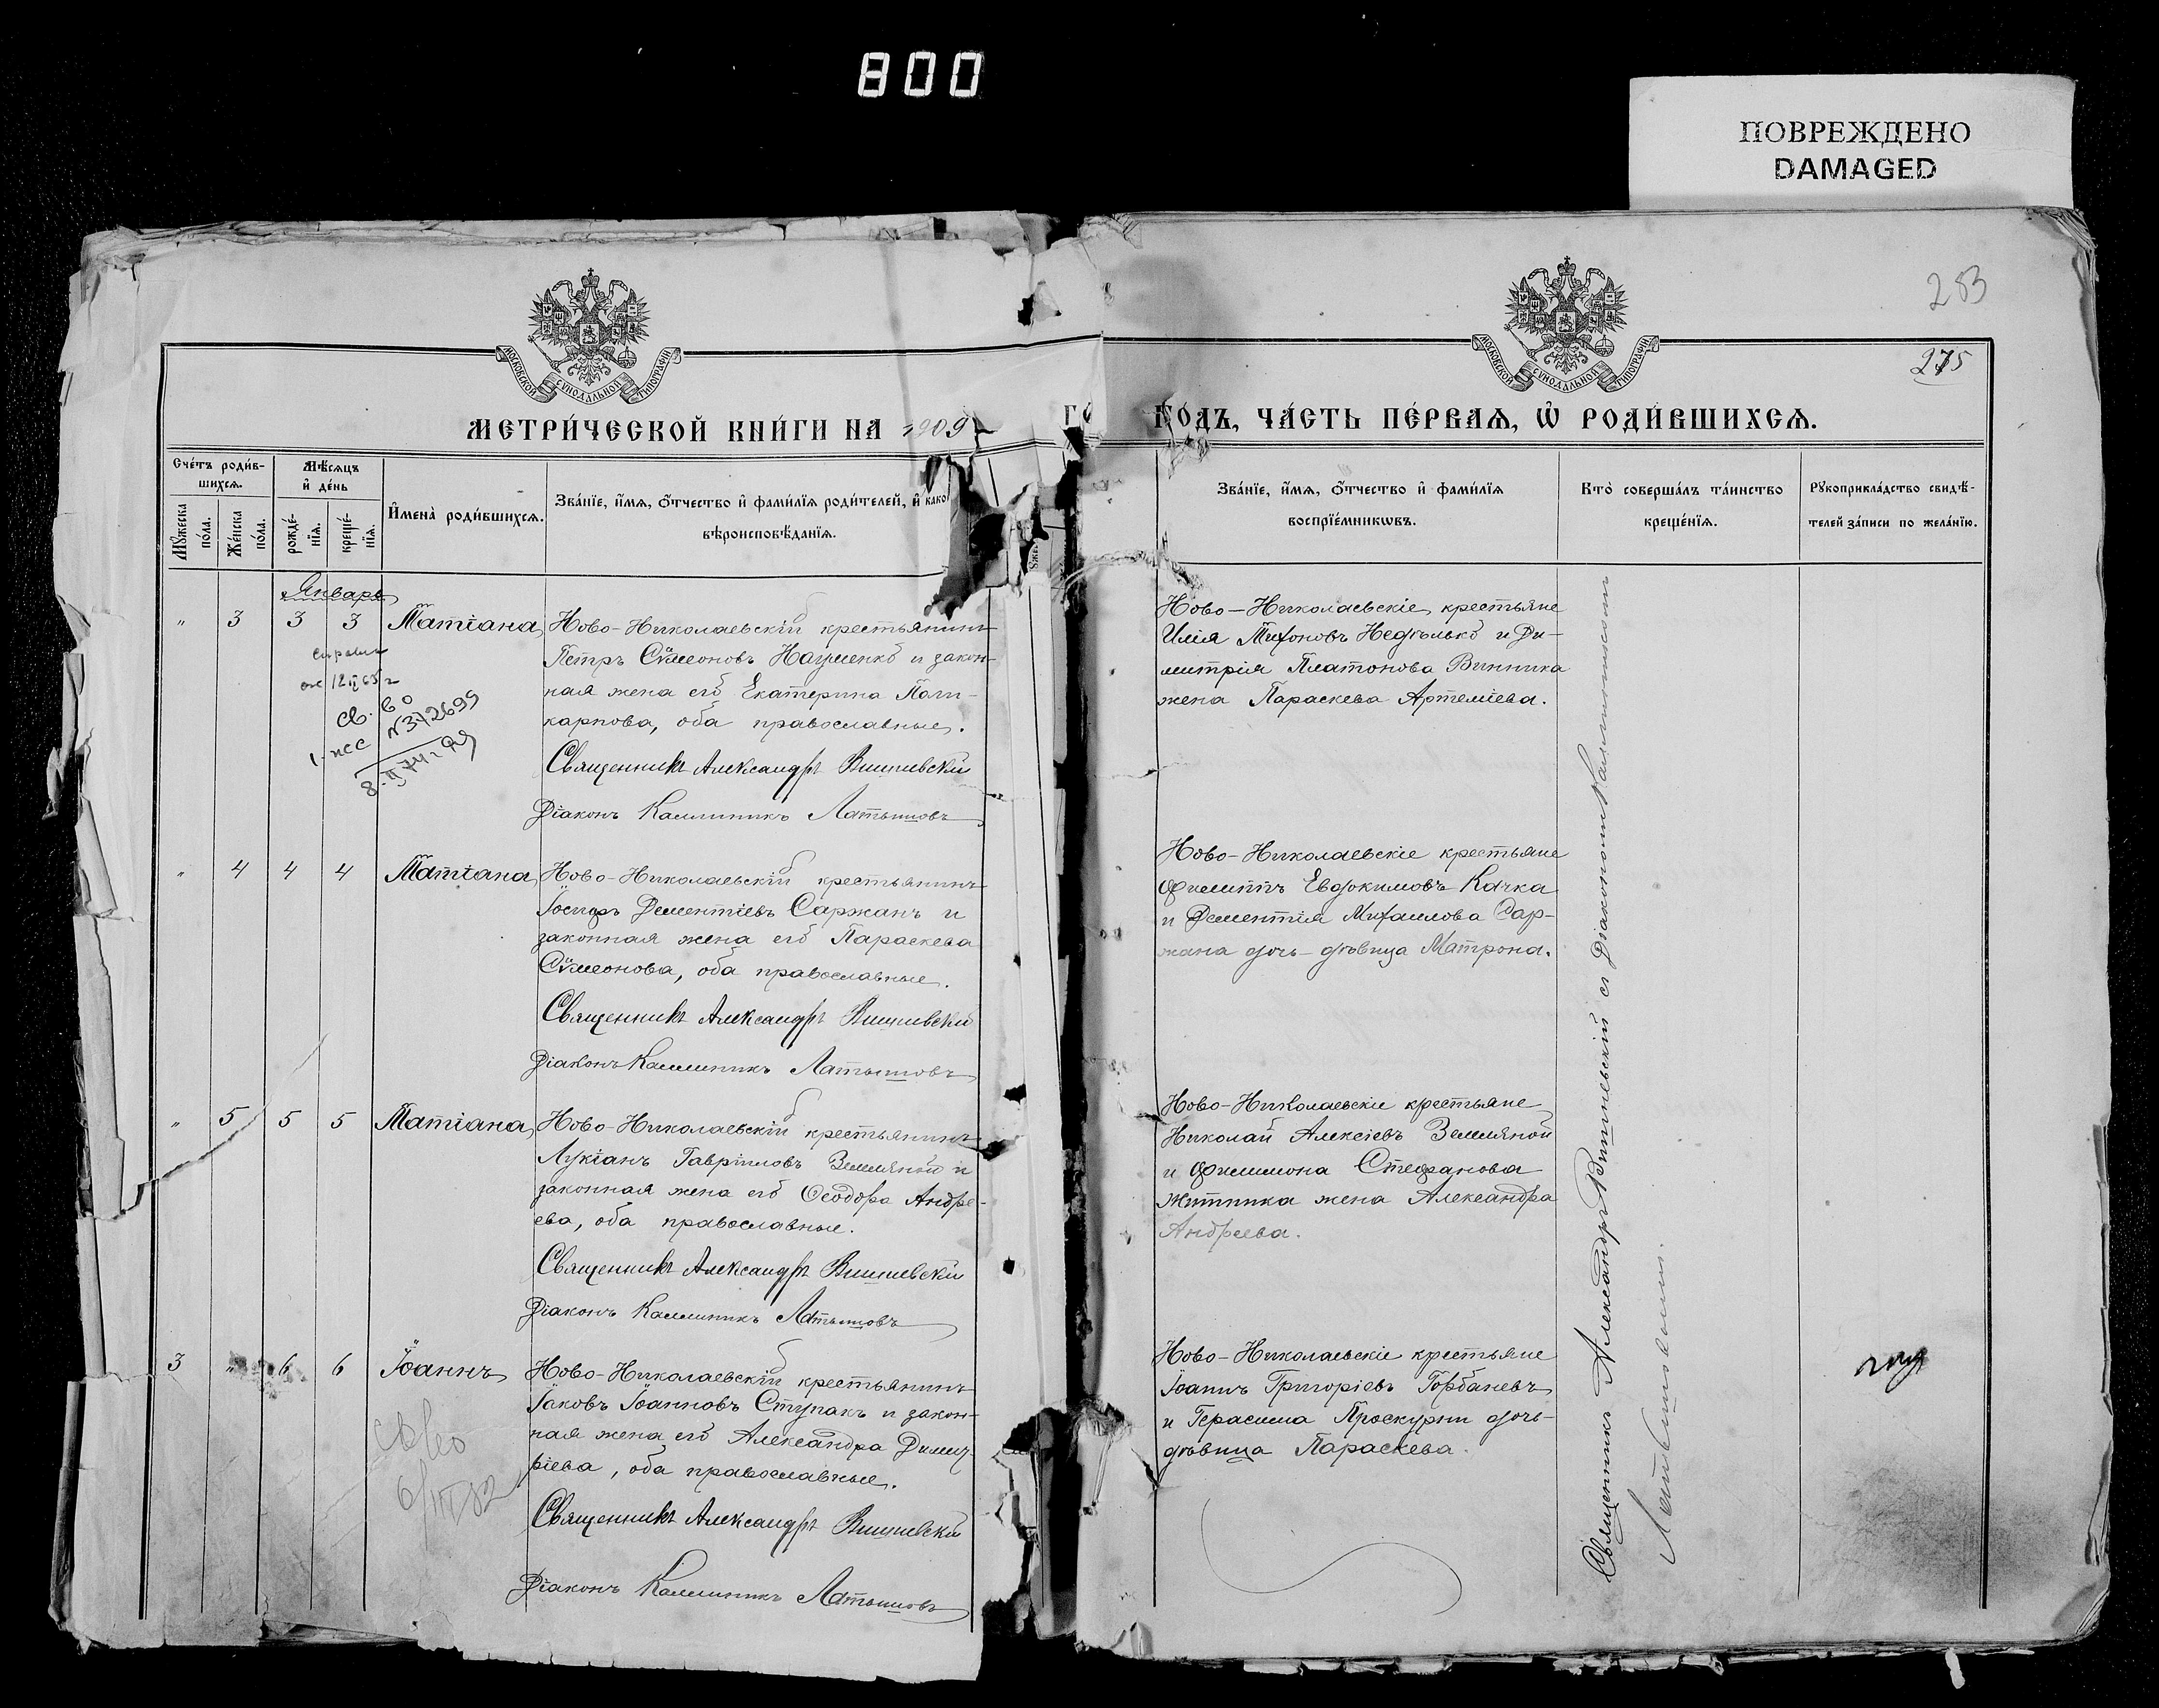 800
ПОВРЕЖДЕНО
DAMAGED
283
МОСКОВСКОЙ СУНОДАЛЬНОЙ ТИПОГРАФІИ
МОСКОВСКОЙ СУНОДАЛЬНОЙ ТИПОГРАФІИ
275
МЕТРИ́ЧЕСКОЙ КНИ́ГИ НА 1909
ГО́ДЪ, ЧА́СТЬ ПЕ́РВАѦ, Ѡ҆ РОДИ́ВШИХСѦ.
Сче́тъ роди́в-
шихсѧ.
Мꙋ́жеска
по́ла.
Же́нска
по́ла.
Мѣ́сѧцъ
и҆ де́нь
рожде́-
нїѧ.
креще́-
нїѧ.
И҆мена̀ роди́вшихсѧ.
Зва́нїе, и҆́мѧ, ѻ҆́тчество и҆ фами́лїѧ роди́телей, и҆ како
вѣроисповѣ́данїѧ.
Зва́нїе, и҆́мѧ, ѻ҆́тчество и҆ фами́лїѧ
воспрїе́мникѡвъ.
Кто̀ соверша́лъ та́инство
креще́нїѧ.
Рꙋкоприкла́дство свидѣ́-
телей за́писи по жела́нїю.
Январь
" 3 3 3 Татіана
Ново-Николаевскій крестьянинъ
Петръ Сѵмеоновъ Науменко и закон-
ная жена его Екатерина Поли-
карпова, оба православные.
Священникъ Александръ Вишневскій
Діаконъ Каллиникъ Латышовъ
св. во
№372699
Ново-Николаевскіе крестьяне
Илія Тихоновъ Недѣлько и Ди-
митрія Платонова Винника
жена Параскева Артеміева.
" 4 4 4 Татіана
Ново-Николаевскій крестьянинъ
Іосифъ Дементіевъ Саржанъ и
законная жена его Параскева
Сѵмеонова, оба православные.
Священникъ Александръ Вишневскій
Діаконъ Каллиникъ Латышовъ
Ново-Николаевскіе крестьяне
Филиппъ Евдокимовъ Качка
и Дементія Михаилова Сар-
жана дочь-дѣвица Матрона.
" 5 5 5 Татіана
Ново-Николаевскій крестьянинъ
Лукіанъ Гавріиловъ Земляной и
законная жена его Ѳеодора Андре-
ева, оба православные.
Священникъ Александръ Вишневскій
Діаконъ Каллиникъ Латышовъ
Ново-Николаевскіе крестьяне
Николай Алексіевъ Земляной
и Филимона Стефанова
Житника жена Александра
Андреева.
3 " 6 6 Іоаннъ
Ново-Николаевскій крестьянинъ
Іаковъ Іоанновъ Ступакъ и закон-
ная жена его Александра Димит
ріева, оба православные.
Священникъ Александръ Вишневскій
Діаконъ Каллиникъ Латышовъ
св во
6/III 82
Ново-Николаевскіе крестьяне
Іоаннъ Григоріевъ Горбаневъ
и Герасима Проскурни дочь-
дѣвица Параскева.
Священникъ Александръ Вишневскій съ діакономъ Каллиникомъ
Латышовымъ.